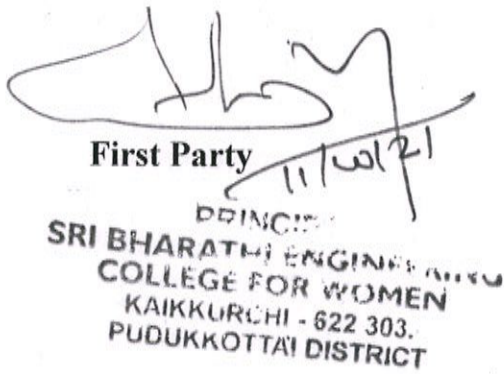 First Party
11/10/21
PRINCIPAL
SRI BHARATHI ENGINEERING
COLLEGE FOR WOMEN
KAIKKURCHI - 622 303.
PUDUKKOTTAI DISTRICT